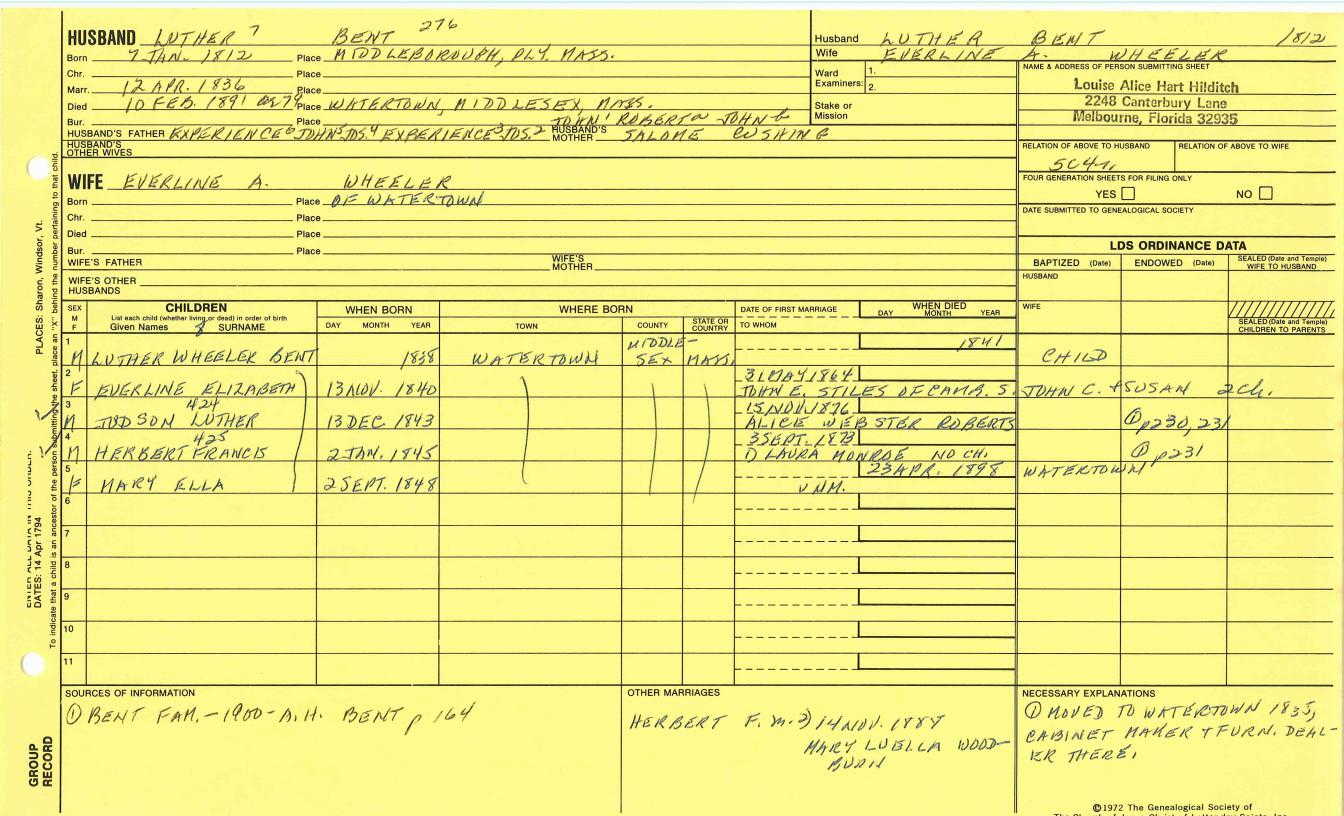 HUSBAND LUTHER 7 BENT 276
Born 7 JAN. 1812 Place MIDDLEBOROUGH, PLY. MASS.
Chr. Place
Marr. 12 APR. 1836 Place
Died 10 FEB. 1891 Place WATERTOWN, MIDDLESEX, MASS.
Bur. Place JOHN1 ROBERT JOHN
HUSBAND'S FATHER EXPERIENCE6 JOHN5 JOS.4 EXPERIENCE3 JOS.2 HUSBAND'S MOTHER SALOME CUSHING
HUSBAND'S OTHER WIVES
Husband LUTHER BENT 1812
Wife EVERLINE A. WHEELER
Ward Examiners: 1.
2.
Stake or Mission
NAME & ADDRESS OF PERSON SUBMITTING SHEET
Louise Alice Hart Hilditch
2248 Canterbury Lane
Melbourne, Florida 32935
RELATION OF ABOVE TO HUSBAND RELATION OF ABOVE TO WIFE
5C4r
FOUR GENERATION SHEETS FOR FILING ONLY
YES NO
DATE SUBMITTED TO GENEALOGICAL SOCIETY
WIFE EVERLINE A. WHEELER
Born Place OF WATERTOWN
Chr. Place
Died Place
Bur. Place
WIFE'S FATHER WIFE'S MOTHER
WIFE'S OTHER HUSBANDS
LDS ORDINANCE DATA
BAPTIZED (Date) ENDOWED (Date) SEALED (Date and Temple) WIFE TO HUSBAND
HUSBAND
WIFE
SEALED (Date and Temple) CHILDREN TO PARENTS
SEX M F
CHILDREN
List each child (whether living or dead) in order of birth
Given Names SURNAME
WHEN BORN
DAY MONTH YEAR
WHERE BORN
TOWN COUNTY STATE OR COUNTRY
DATE OF FIRST MARRIAGE
TO WHOM
WHEN DIED
DAY MONTH YEAR
1 MIDDLE- 1841
M LUTHER WHEELER BENT 1838 WATERTOWN SEX MASS. CHILD
2 31 MAY 1864
F EVERLINE ELIZABETH 13 NOV. 1840 JOHN E. STILES OF CAMB. S. JOHN C. + SUSAN 2 Ch.
3 424 15 NOV. 1876
M JUDSON LUTHER 13 DEC. 1843 ALICE WEBSTER ROBERTS ① p230, 231
4 425 3 SEPT. 1873
M HERBERT FRANCIS 2 JAN. 1845 D LAURA MONROE NO CH. ① p231
5 23 APR. 1898 WATERTOWN
F MARY ELLA 2 SEPT. 1848 UNM.
6
7
8
9
10
11
SOURCES OF INFORMATION
① BENT FAM. - 1900 - A.H. BENT p 164
OTHER MARRIAGES
HERBERT F. m. 2) 14 NOV. 1888
MARY LUELLA WOOD-
BURN
NECESSARY EXPLANATIONS
① MOVED TO WATERTOWN 1835,
CABINET MAKER + FURN. DEAL-
ER THERE.
©1972 The Genealogical Society of
PLACES: Sharon, Windsor, Vt.
DATES: 14 Apr 1794
ENTER ALL DATA IN THIS ORDER:
To indicate that a child is an ancestor of the person submitting the sheet, place an "X" behind the number pertaining to that child.
GROUP RECORD